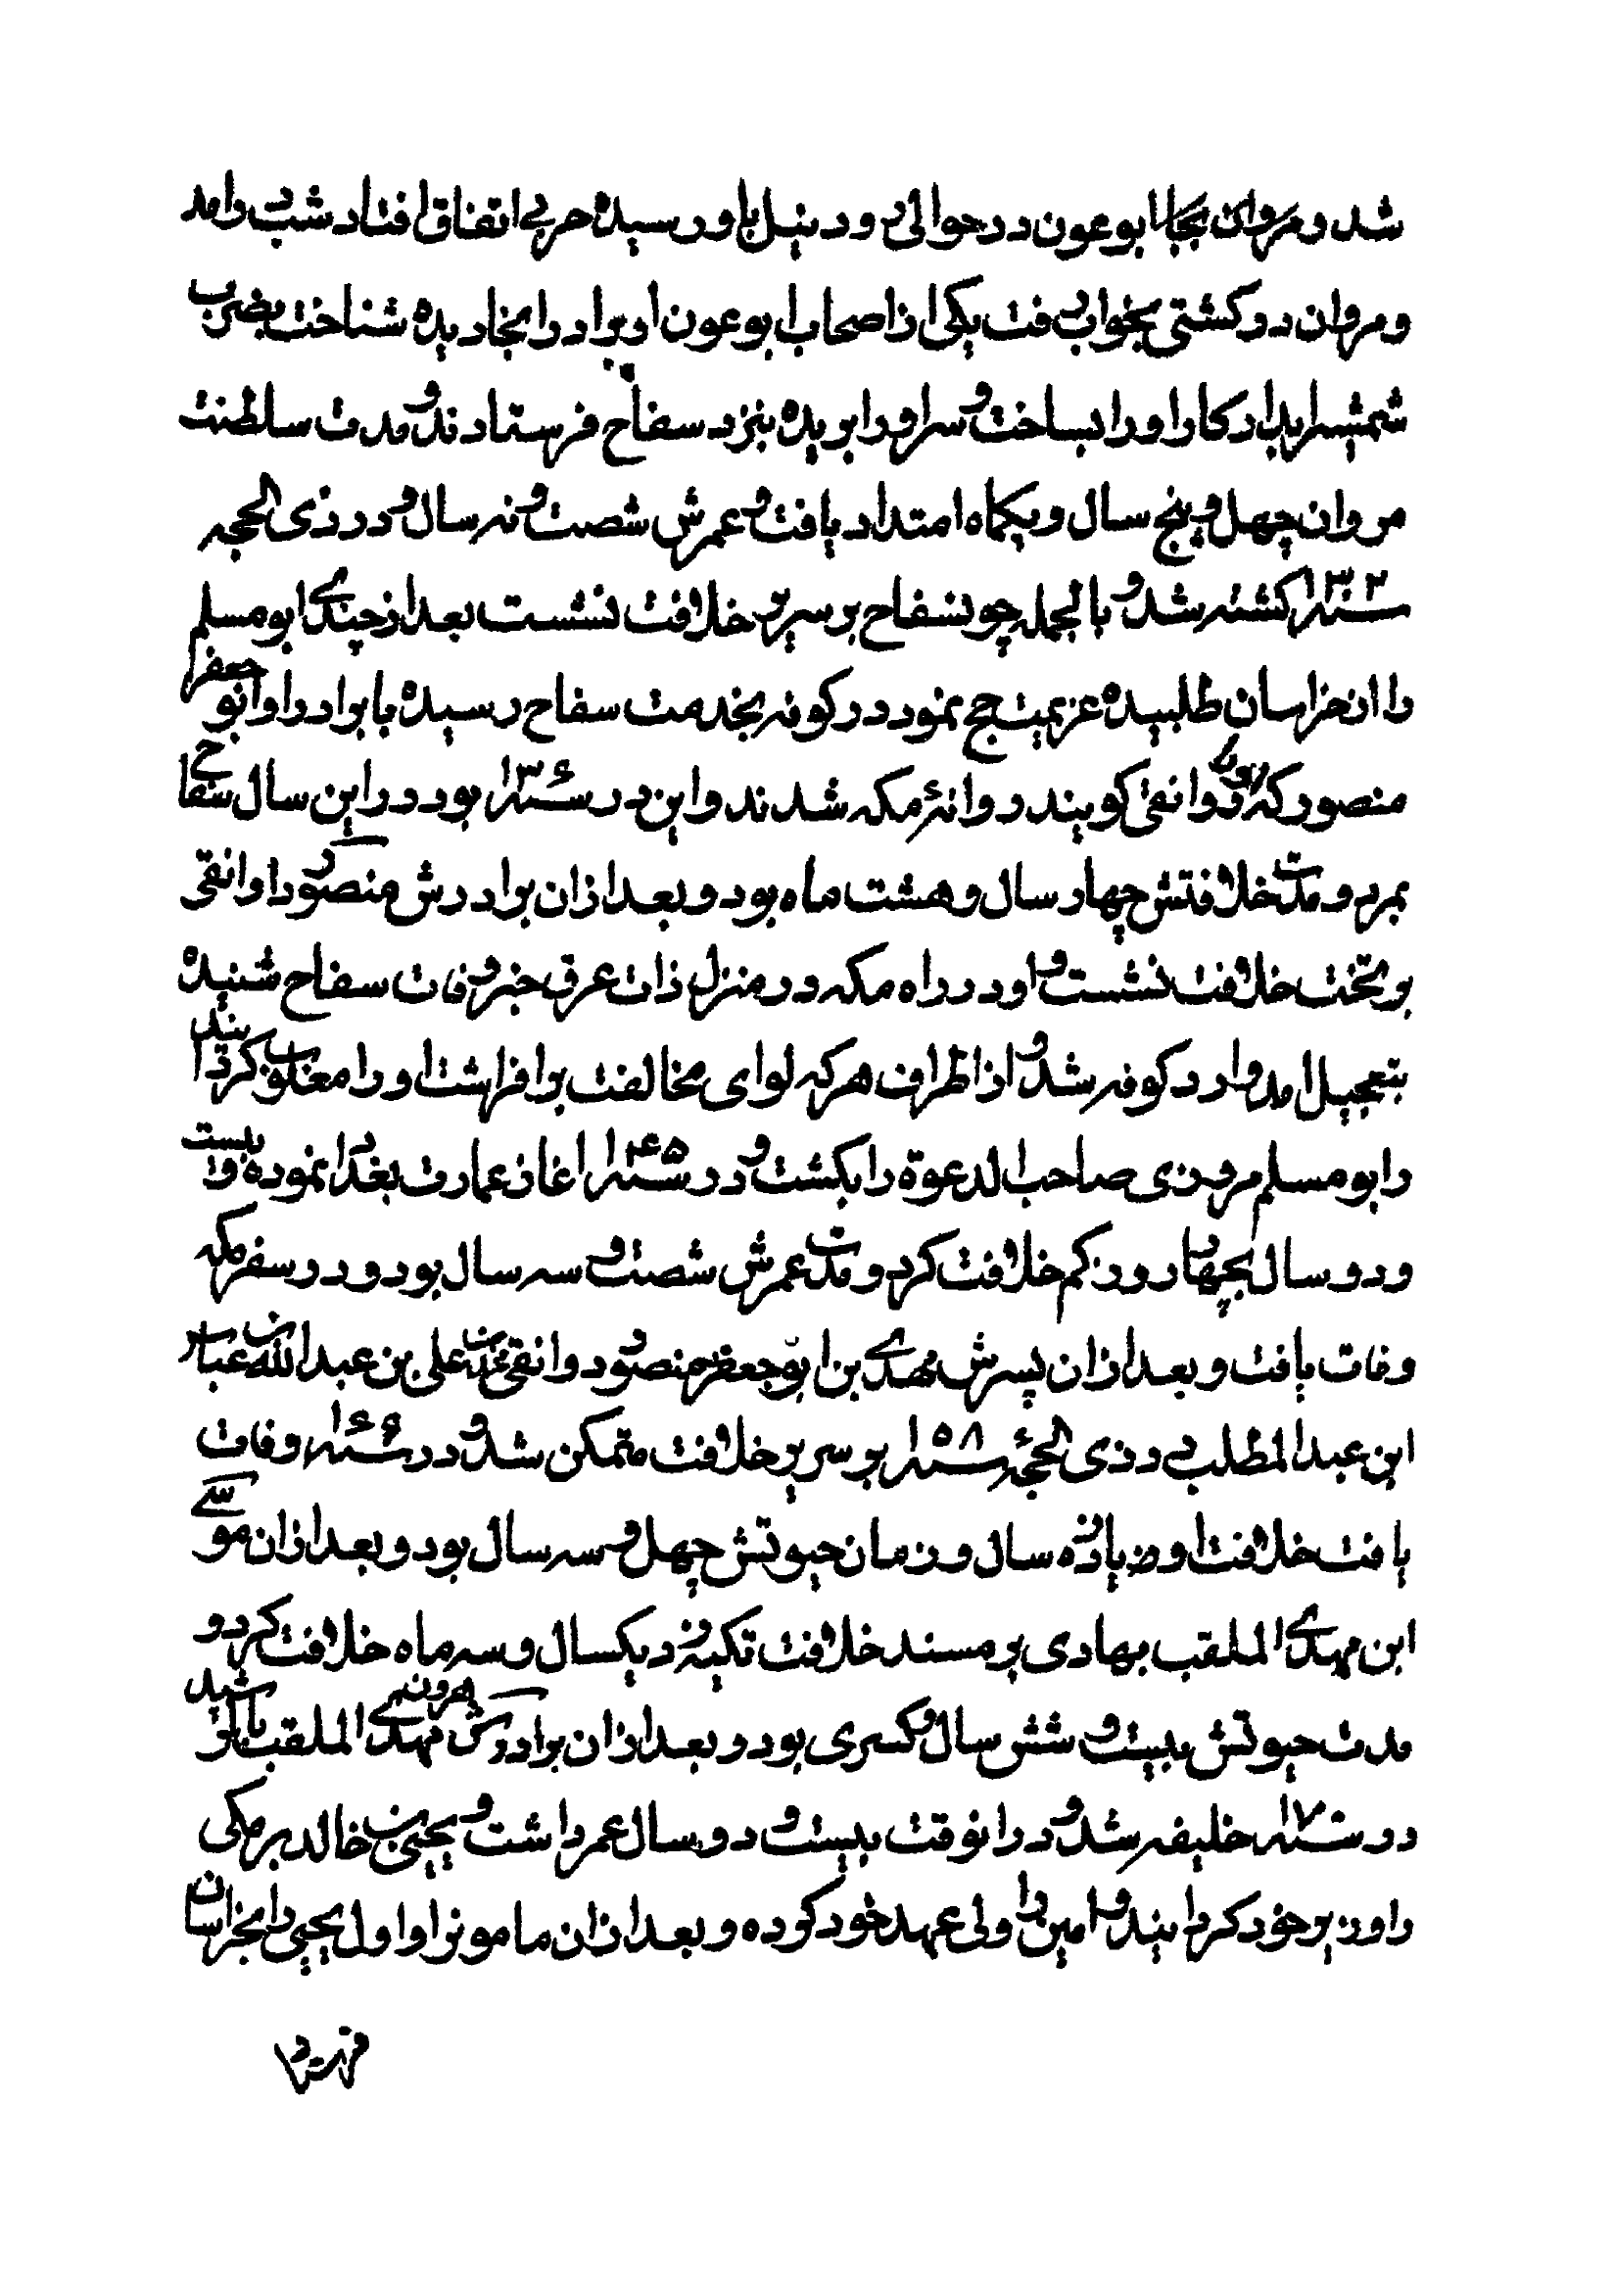 شد و مروان بجا ابو عون در حوالی رود نیل باو رسیده حربی اتفاق افتاد شب درامد
و مروان در کشتی بخواب رفت یکی از اصحاب ابو عون او برادر را بخا دیده شناخت بضرب
شمشیر ابدار کار او را بساخت و سر او را بریده بنزد سفاح فرستادند و مدت سلطنت
مروان چهل و پنج سال و یکماه امتداد یافت و عمرش شصت و نه سال و در ذی الحجه
سنه ۱۳۲ کشته شد و بالجمله چون سفاح بر سریر خلافت نشست بعد از چندی ابو مسلم
را از خراسان طلبیده عزیمت حج نمود در کوفه بخدمت سفاح رسیده با برادر او ابو جعفر
منصور که او را دوانقی کویند روانهٔ مکه شدند و این در سنه ۱۳۶ بود در این سال سفاح
بمرد و مدت خلافتش چهار سال و هشت ماه بود و بعد ازان برادرش منصور دوانقی
بر تخت خلافت نشست و او در راه مکه در منزل ذات عرق خبر وفات سفاح شنیده
بتعجیل امد و وارد کوفه شد و از اطراف هر که لوای مخالفت برافراشت او را مغلوب کردانید
و ابو مسلم مروزی صاحب الدعوة را بکشت و در سنه ۱۴۵ اغاز عمارت بغداد نموده و بیست
و دو سال بچهار روز کم خلافت کرد و مدت عمرش شصت و سه سال بود و در سفر مکه
وفات یافت و بعد ازان پسرش مهدی بن ابو جعفر منصور دوانقی بن محمد بن علی بن عبدالله بن عباس
ابن عبد المطلب در ذی الحجهٔ سنه ۱۵۸ بر سریر خلافت متمکن شد و در سنه ۱۶۶ وفات
یافت خلافت او ده یازده سال و زمان حیوتش چهل و سه سال بود و بعد ازان موسی
ابن مهدی الملقب بهادی بر مسند خلافت تکیه زد یکسال و سه ماه خلافت کرد و
مدت حیوتش بیست و شش سال و کسری بود و بعد ازان برادرش هرون بن مهدی الملقب بالرشید
در سنه ۱۷۰ خلیفه شد و در انوقت بیست و دو سال عمر داشت و یحیی بن خالد برمکی
را وزیر خود کردانید و امین را ولی عهد خود کرده و بعد ازان مامونرا و اول یحیی را بخراسان
فرستاد